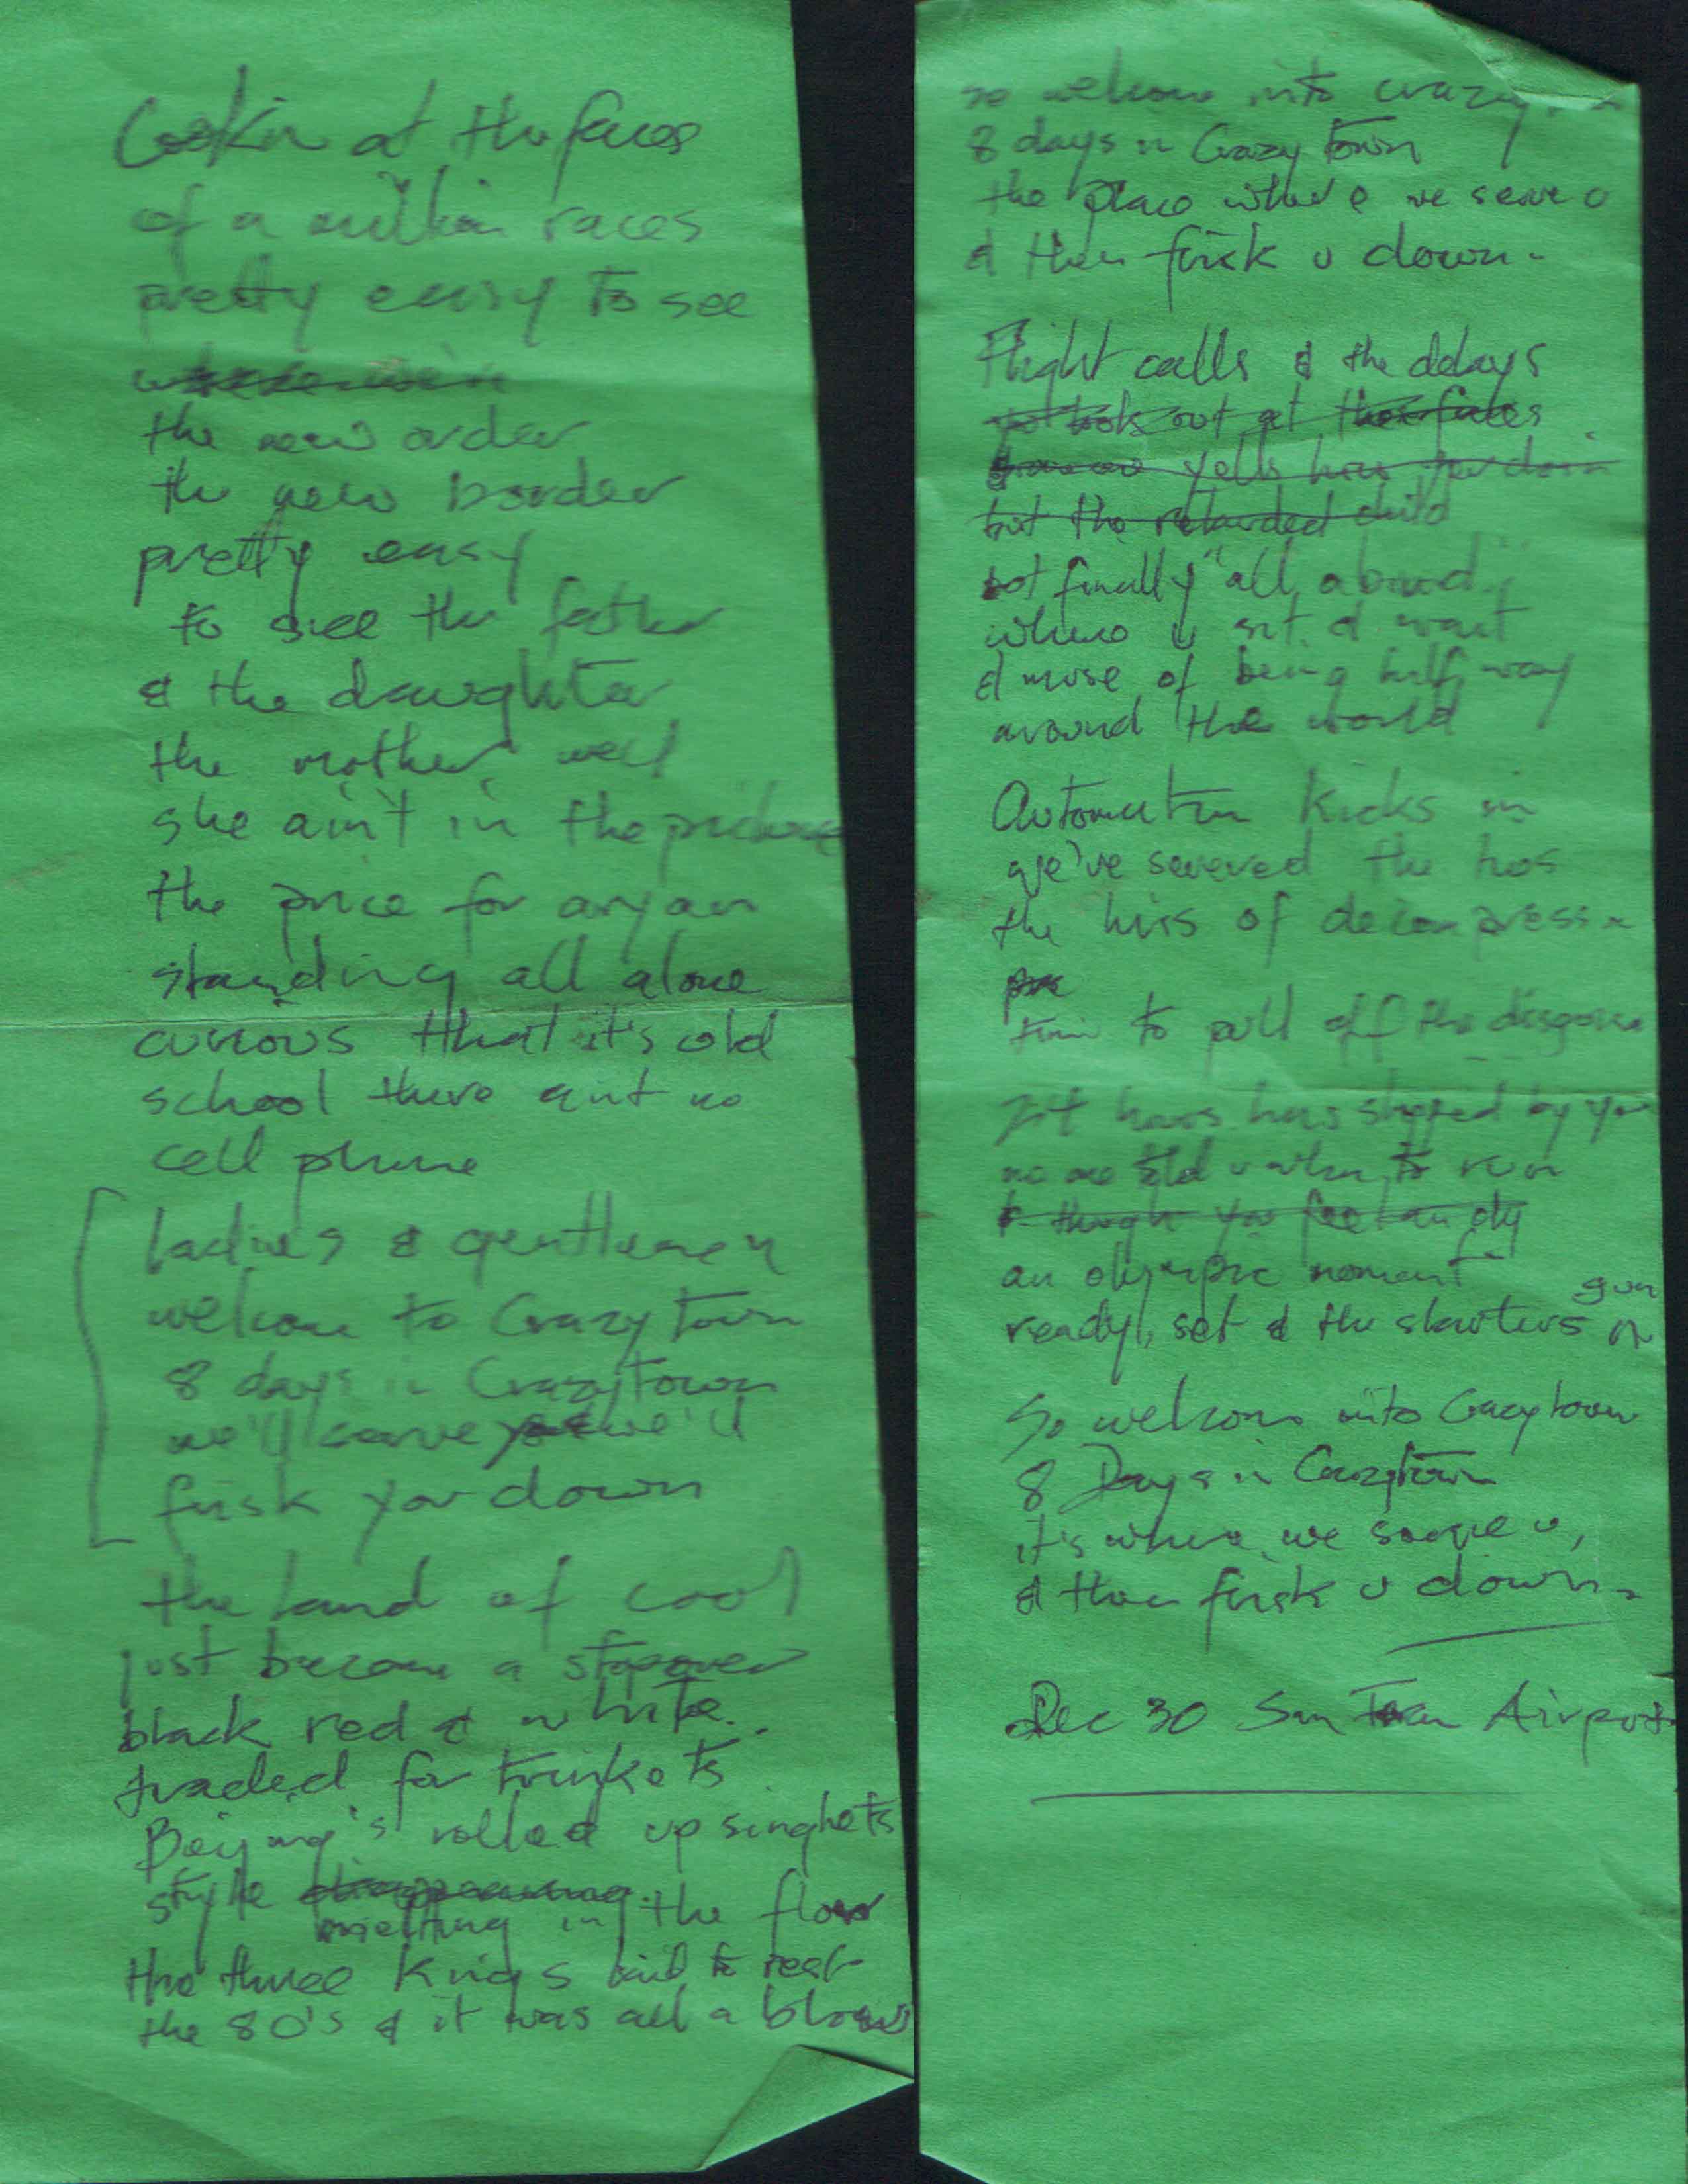 Lookin at the faces
of a million races
pretty easy to see
the new order
the new border
pretty easy
to see the father
& the daughter
the mother well
she ain't in the picture
the price for aryan
standing all alone
curious that it's old
school there aint no
cell phone
ladies & gentlemen
welcome to Crazytown
8 days in Crazytown
we'll serve we'll
frisk you down
the land of cool
just became a stopover
black red & white
traded for trinkets
Beijing's rolled up singlets
style melting in the floor
the three Kings laid to rest
the 80's & it was all a
so welcome into crazy
8 days in Crazytown
the place where we serve u
& then frisk u down.
Flight calls & the delays
out at these faces
yells
but the retarded child
but finally "all aboard"
where u sit & wait
& muse of being half way
around the world
Automation Kicks in
we've severed the
the hiss of decompress
time to pull off the disguise
hours has slipped by you
no one told u when to run
an olympic moment
ready, set & the starters gun
So welcome into Crazytown
8 Days in Crazytown
it's where we serve u,
& then frisk u down.
Dec 30 Airport